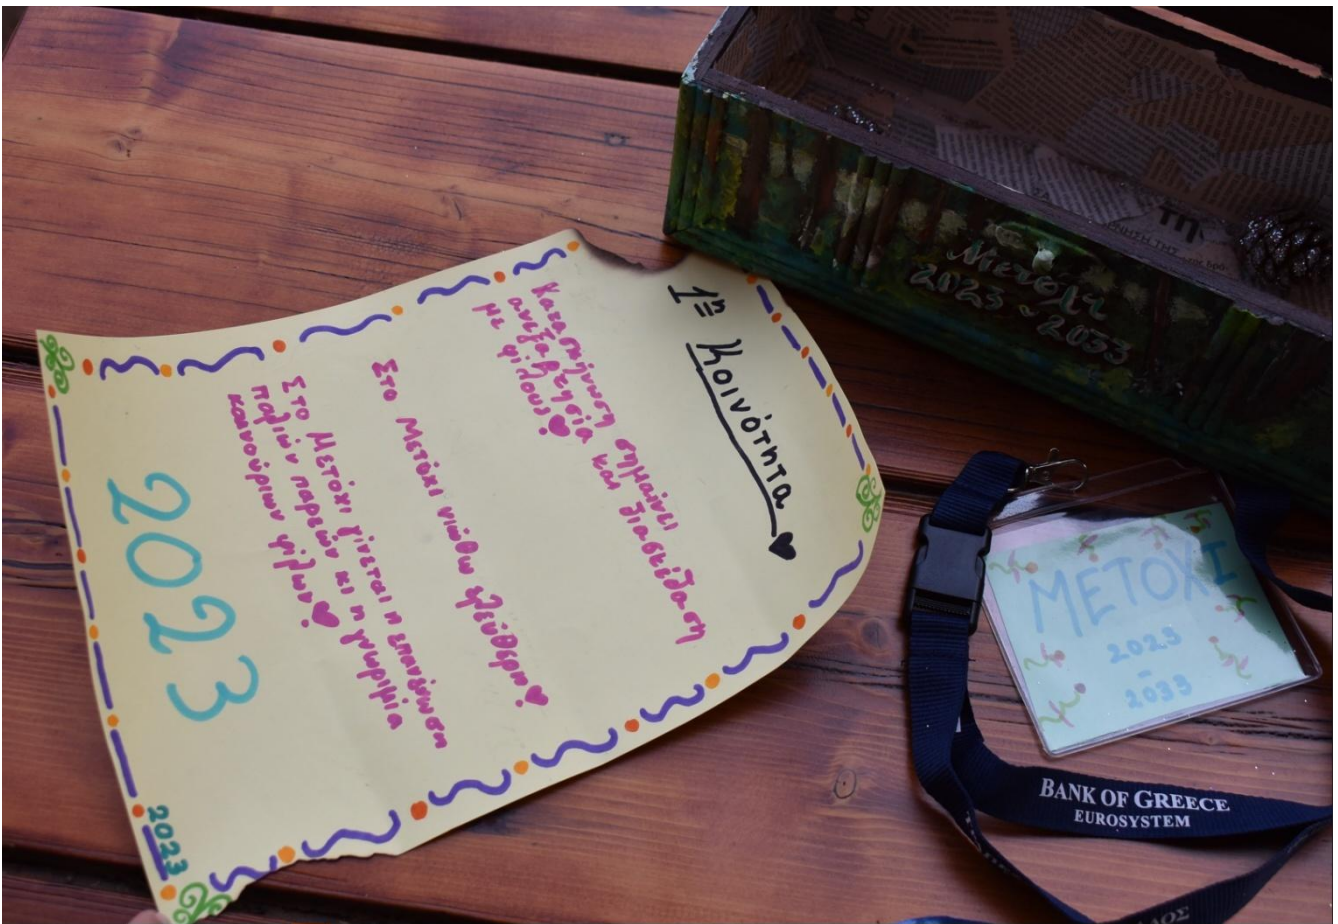 1η Κοινότητα
Κατασκήνωση σημαίνει
ανεξαρτησία και διασκέδαση
με φίλους!
Στο Μετόχι νιώθω ελεύθερη!
Στο Μετόχι γίνεται η επανένωση
παλιών παρεών κι η γνωριμία
καινούριων φίλων!
2023
2023
Μετόχι
2023 ~ 2033
ΜΕΤΟΧΙ
2023
-
2033
BANK OF GREECE
EUROSYSTEM